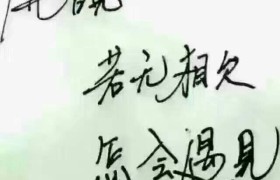 若无相欠
怎会遇见